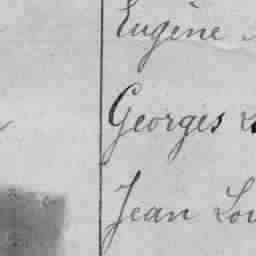 Eugène
Georges
Jean Lou